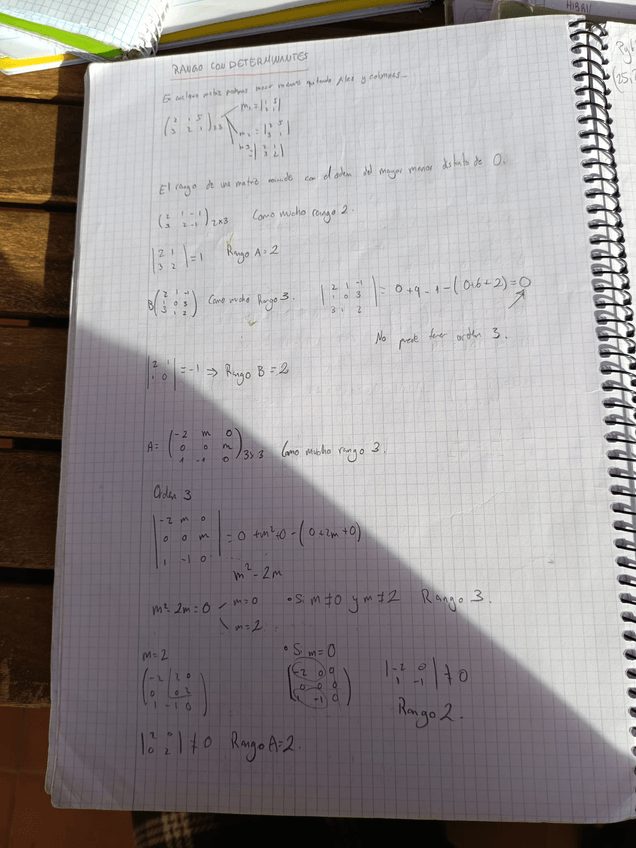 HIBRU
RANGO CON DETERMINANTES
En cualquier matriz podemos sacar menores quitando filas y columnas...
(2 1 5
3 2 1)2x3
m1 = |1 5
2 1|
m2 = |2 5
3 1|
m3 = |2 1
3 2|
El rango de una matriz coincide con el orden del mayor menor distinto de 0.
(2 1 -1
3 2 -1)2x3 Como mucho rango 2.
|2 1
3 2| = 1 Rango A = 2
B(2 1 -1
1 0 3
3 1 2) Como mucho Rango 3.
|2 1 -1
1 0 3
3 1 2| = 0 + 9 - 1 - (0 + 6 + 2) = 0
No puede tener orden 3.
|2 1
1 0| = -1 ⇒ Rango B = 2
A = (-2 m 0
0 0 m
1 -1 0)3x3 Como mucho rango 3.
Orden 3
|-2 m 0
0 0 m
1 -1 0| = 0 + m² + 0 - (0 + 2m + 0)
m² - 2m
m² - 2m = 0 m = 0
m = 2
• Si m ≠ 0 y m ≠ 2 Rango 3.
m = 2
(-2 2 0
0 0 2
1 -1 0)
|2 0
0 2| ≠ 0 Rango A = 2.
• Si m = 0
(-2 0 0
0 0 0
1 -1 0)
|-2 0
1 -1| ≠ 0
Rango 2.